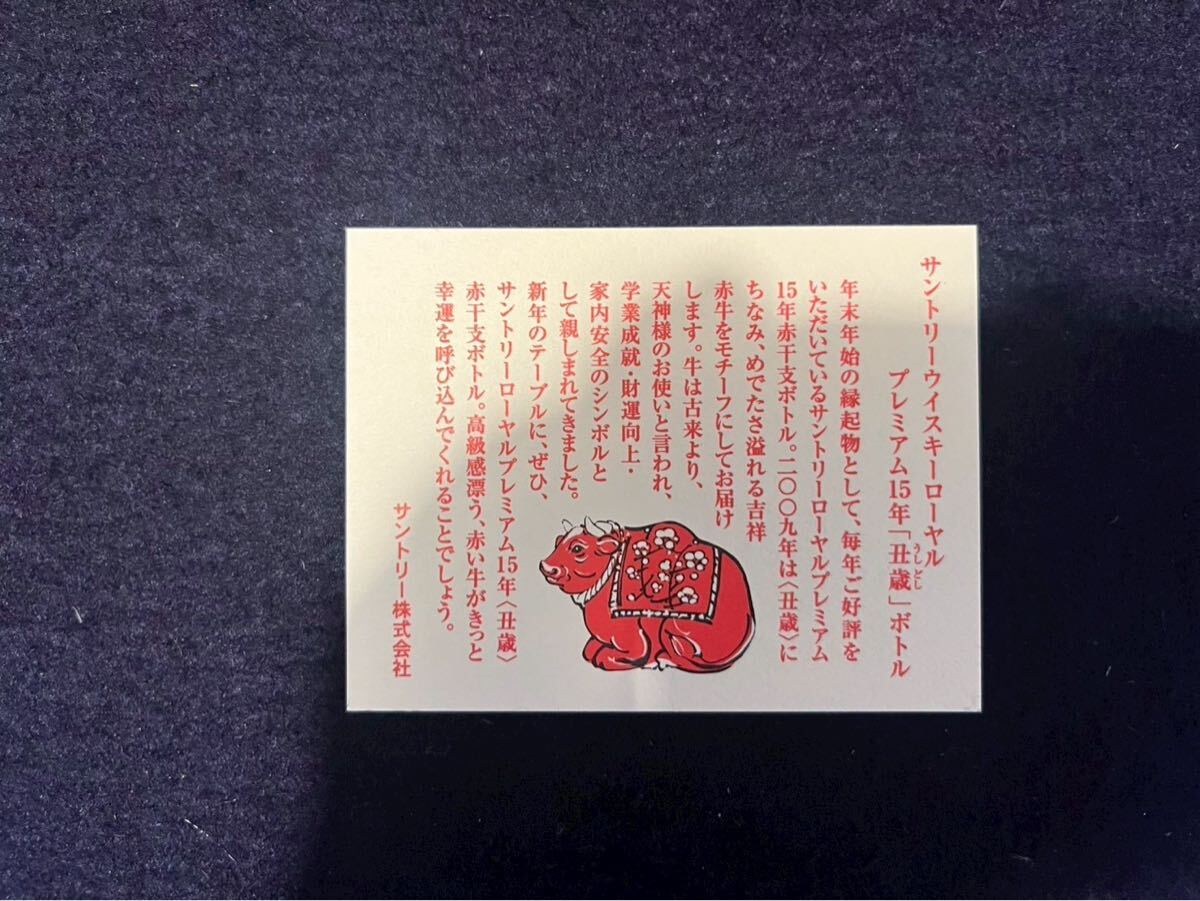 サントリーウイスキーローヤル
プレミアム15年「丑歳」ボトル
うしどし
年末年始の縁起物として、毎年ご好評を
いただいているサントリーローヤルプレミアム
15年赤干支ボトル。二〇〇九年は〈丑歳〉に
ちなみ、めでたさ溢れる吉祥
赤牛をモチーフにしてお届け
します。牛は古来より、
天神様のお使いと言われ、
学業成就・財運向上・
家内安全のシンボルと
して親しまれてきました。
新年のテーブルに、ぜひ、
サントリーローヤルプレミアム15年〈丑歳〉
赤干支ボトル。高級感漂う、赤い牛がきっと
幸運を呼び込んでくれることでしょう。
サントリー株式会社